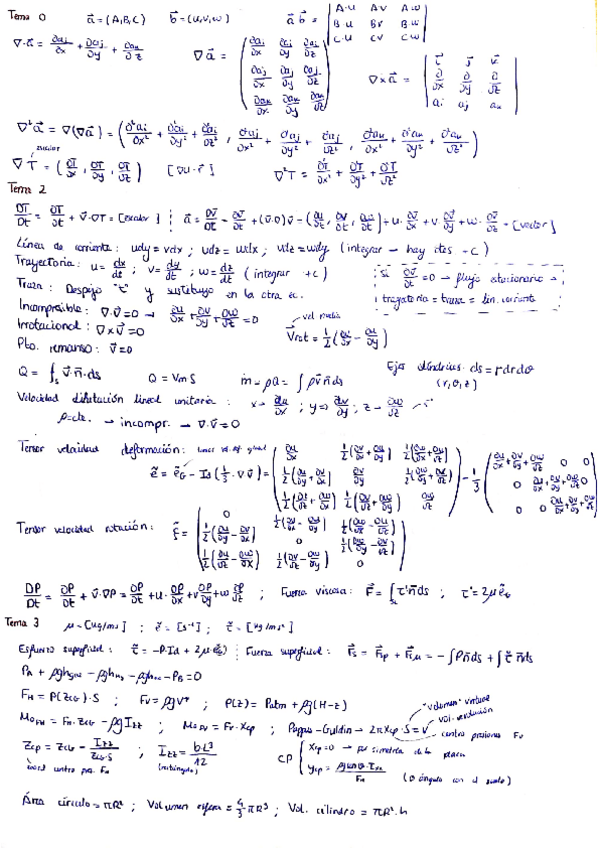 Tema 0    a⃗ = (A,B,C)    b⃗ = (u,v,w)    a⃗ b⃗ = | A·u  A·v  A·w |
| B·u  B·v  B·w |
| C·u  C·v  C·w |
∇·a⃗ = ∂ai/∂x + ∂aj/∂y + ∂ak/∂z    ∇a⃗ = ( ∂ai/∂x  ∂ai/∂y  ∂ai/∂z
∂aj/∂x  ∂aj/∂y  ∂aj/∂z
∂ak/∂x  ∂ak/∂y  ∂ak/∂z )    ∇×a⃗ = | i⃗  j⃗  k⃗
∂/∂x  ∂/∂y  ∂/∂z
ai  aj  ak |
∇²a⃗ = ∇(∇a⃗) = ( ∂²ai/∂x² + ∂²ai/∂y² + ∂²ai/∂z² , ∂²aj/∂x² + ∂²aj/∂y² + ∂²aj/∂z² , ∂²ak/∂x² + ∂²ak/∂y² + ∂²ak/∂z² )
∇T = ( ∂T/∂x , ∂T/∂y , ∂T/∂z )    ∇²T = ∂²T/∂x² + ∂²T/∂y² + ∂²T/∂z²
Tema 2
DT/Dt = ∂T/∂t + v⃗·∇T = [escalar]    a⃗ = Dv⃗/Dt = ∂v⃗/∂t + (v⃗·∇)v⃗ = (∂u/∂t, ∂v/∂t, ∂w/∂t) + u·∂v⃗/∂x + v ∂v⃗/∂y + w·∂v⃗/∂z = [vector]
Línea de corriente: udy = vdx ; udz = wdx ; vdz = wdy (integrar – hay ctes +C)
Trayectoria: u = dx/dt ; v = dy/dt ; w = dz/dt (integrar +C)
si ∂v⃗/∂t = 0 → flujo estacionario →
trayectoria = traza = lin. corriente
Traza: Despejo "t" y sustituyo en la otra ec.
Incompresible: ∇·v⃗ = 0 → ∂u/∂x + ∂v/∂y + ∂w/∂z = 0
Irrotacional: ∇×v⃗ = 0    Vrot = 1/2(∂v/∂x − ∂u/∂y)
Pto. remanso: v⃗ = 0
Q = ∫s v⃗·n⃗·ds    Q = Vm S    ṁ = ρQ = ∫ρv⃗n⃗ds    Ejes cilíndricos ds = r dr dθ
(r, θ, z)
Velocidad dilatación lineal unitaria: x → ∂u/∂x ; y → ∂v/∂y ; z → ∂w/∂z
ρ=cte. → incompr. → ∇·v⃗ = 0
Tensor velocidad deformación:
ē = ēG − Id(1/3·∇v⃗) = ( ∂u/∂x  1/2(∂v/∂x+∂u/∂y)  1/2(∂w/∂x+∂u/∂z)
1/2(∂u/∂y+∂v/∂x)  ∂v/∂y  1/2(∂w/∂y+∂v/∂z)
1/2(∂u/∂z+∂w/∂x)  1/2(∂v/∂z+∂w/∂y)  ∂w/∂z ) − 1/3 ( ∂u/∂x+∂v/∂y+∂w/∂z  0  0
0  ∂u/∂x+∂v/∂y+∂w/∂z  0
0  0  ∂u/∂x+∂v/∂y+∂w/∂z )
Tensor velocidad rotación: ξ = ( 0  1/2(∂v/∂x−∂u/∂y)  1/2(∂w/∂x−∂u/∂z)
1/2(∂u/∂y−∂v/∂x)  0  1/2(∂w/∂y−∂v/∂z)
1/2(∂u/∂z−∂w/∂x)  1/2(∂v/∂z−∂w/∂y)  0 )
DP/Dt = ∂P/∂t + v⃗·∇P = ∂P/∂t + u·∂P/∂x + v ∂P/∂y + w ∂P/∂z ; Fuerza viscosa: F⃗ = ∫s τ'n⃗ds ; τ' = 2μēG
Tema 3    μ = [kg/ms] ; ē = [s⁻¹] ; τ̄ = [kg/ms²]
Esfuerzo superficial: τ̄ = −P·Id + 2μ(ēG)  Fuerza superficial: F⃗s = F⃗sp + F⃗sμ = −∫Pn⃗ds + ∫τ̄'n⃗ds
FH = P(ZCG)·S ; FV = ρgV ; P(z) = Patm + ρg(H−z)
"volumen" virtual
vol. revolución
MOFH = FH·ZCG − ρgIZZ ; MOFV = FV·XCP ; Pappus–Guldin → 2πXCP·S = V
centro presiones FV
ZCP = ZCG − IZZ/ZCG·S ; IZZ = bL³/12
(rectángulo)
CP { XCP = 0 → por simetría de la placa
(θ ángulo con el suelo)
Área círculo = πR² ; Volumen esfera = 4/3 πR³ ; Vol. cilindro = πR²·h